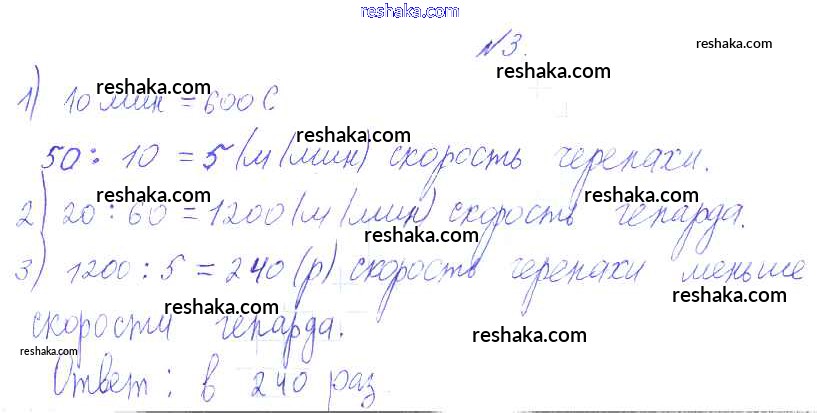 reshaka.com
№3.
reshaka.com
reshaka.com
1) 10 мин = 600 С
reshaka.com
50 : 10 = 5 (м/мин) скорость черепахи.
reshaka.com reshaka.com
2) 20 : 60 = 1200 (м/мин) скорость гепарда.
reshaka.com
3) 1200 : 5 = 240 (р) скорость черепахи меньше
reshaka.com reshaka.com
скорости гепарда.
reshaka.com
reshaka.com
Ответ: в 240 раз
reshaka.com